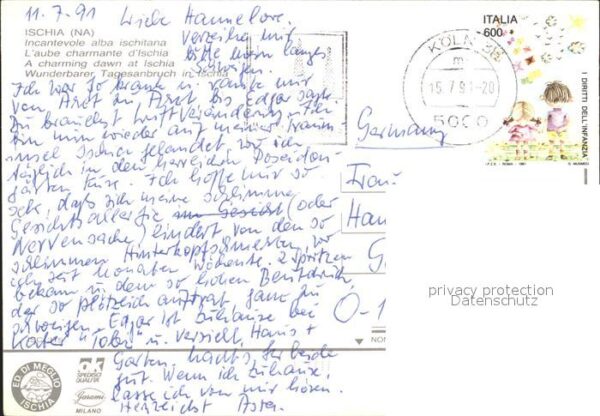 11.7.91 Liebe Hannelore.
Verzeihe mir
bitte mein langes
Schweigen.
ISCHIA (NA)
Incantevole alba ischitana
L'aube charmante d'Ischia
A charming dawn at Ischia
Wunderbarer Tagesanbruch in Ischia
Ich war so krank u. raste mit
von Arzt zu Arzt bis Edgar sagte
Du brauchst Luftveränderung. Ich
bin nun wieder auf meiner Traum
insel Ischia gelandet, wo ich
täglich in den herrlichen Poseidon
gärten kure. Ich hoffe nur so
sehr, daß sich meine schlimme
Gesichtsallergie (oder
Nervensache) lindert von den so
schlimmen Hinterkopfschmerzen, wo
ich seit Monaten 2 Spritzen
bekam u. dem so hohen Blutdruck,
der so plötzlich auftrat, ganz zu
schweigen. Edgar ist zuhause bei
Kater "Tobi" u. versieht Haus +
Garten. Machts Ihr beide
gut. Wenn ich zuhause,
lasse ich von mir hören.
Herzlichst
ITALIA
600
I DIRITTI DELL'INFANZIA
I.P.Z.S. - ROMA - 1991
KÖLN
m
15.7.91-20
5000
Germany
Frau
Han
G
O-1
privacy protection
Datenschutz
ED. DI MEGLIO
ISCHIA
SPEDISCI
QUALITÀ
Garami
MILANO
NON